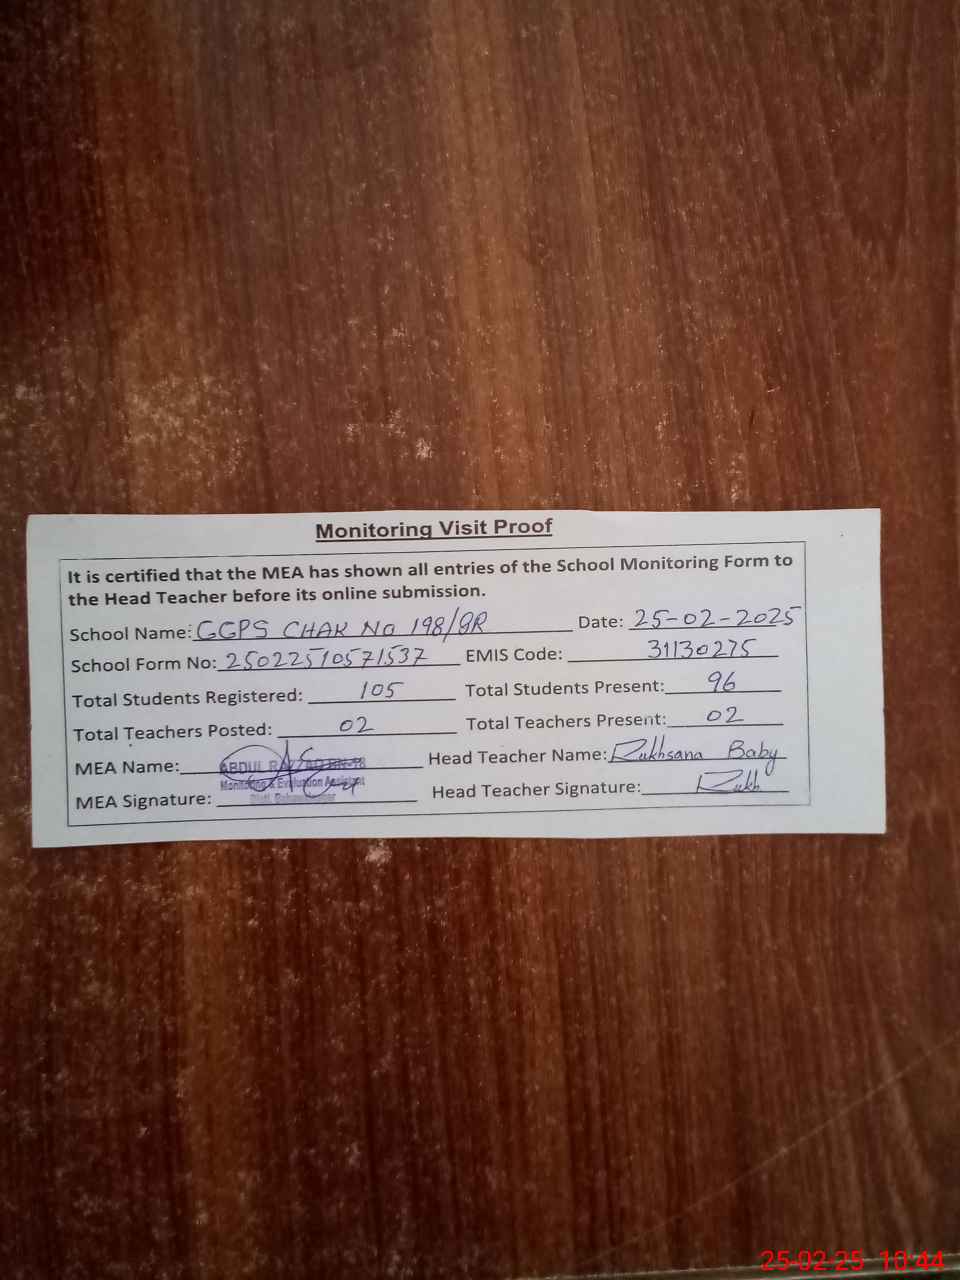 Monitoring Visit Proof
It is certified that the MEA has shown all entries of the School Monitoring Form to
the Head Teacher before its online submission.
School Name: GGPS CHAK No 198/9R Date: 25-02-2025
School Form No: 25022510571537 EMIS Code: 31130275
Total Students Registered: 105 Total Students Present: 96
Total Teachers Posted: 02 Total Teachers Present: 02
MEA Name: ABDUL RAZZAQ Head Teacher Name: Rukhsana Baby
Monitoring & Evaluation Assistant
MEA Signature: Head Teacher Signature: Rukh
25-02-25 10:44